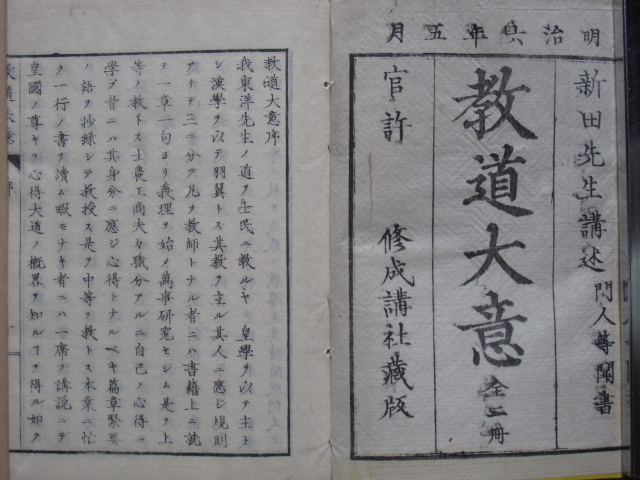 明治年五月
新田先生講述 門人等聞書
教道大意 全二冊
官許 修成講社藏版
教道大意序
我東洋先生ノ道ヲ士民ニ教ルヤ 皇學ヲ以テ主ト
シ漢學ヲ以テ羽翼トス其教ヲ立ル其人ニ應シ規則
アリテ三ニ分ツ凡ソ教師トナル者ニハ書籍上ニ就
テ一章一句ヨリ義理ヲ始メ萬事研究セシム是ヲ上
等ノ教トス士農工商夫々職分アルニ自己ノ心得ニ
學ブ者ニハ其身分ニ應ジ心得トナルベキ篇章緊要
ノ語ヲ抄録シテ教授ス是ヲ中等ノ教トス本業ニ忙
ク一行ノ書ヲ讀ム暇モナキ者ニハ一席ノ講説ニテ
皇國ノ尊キヲ心得大道ノ概畧ヲ知ルヿヲ得ル如ク
教道大意 序